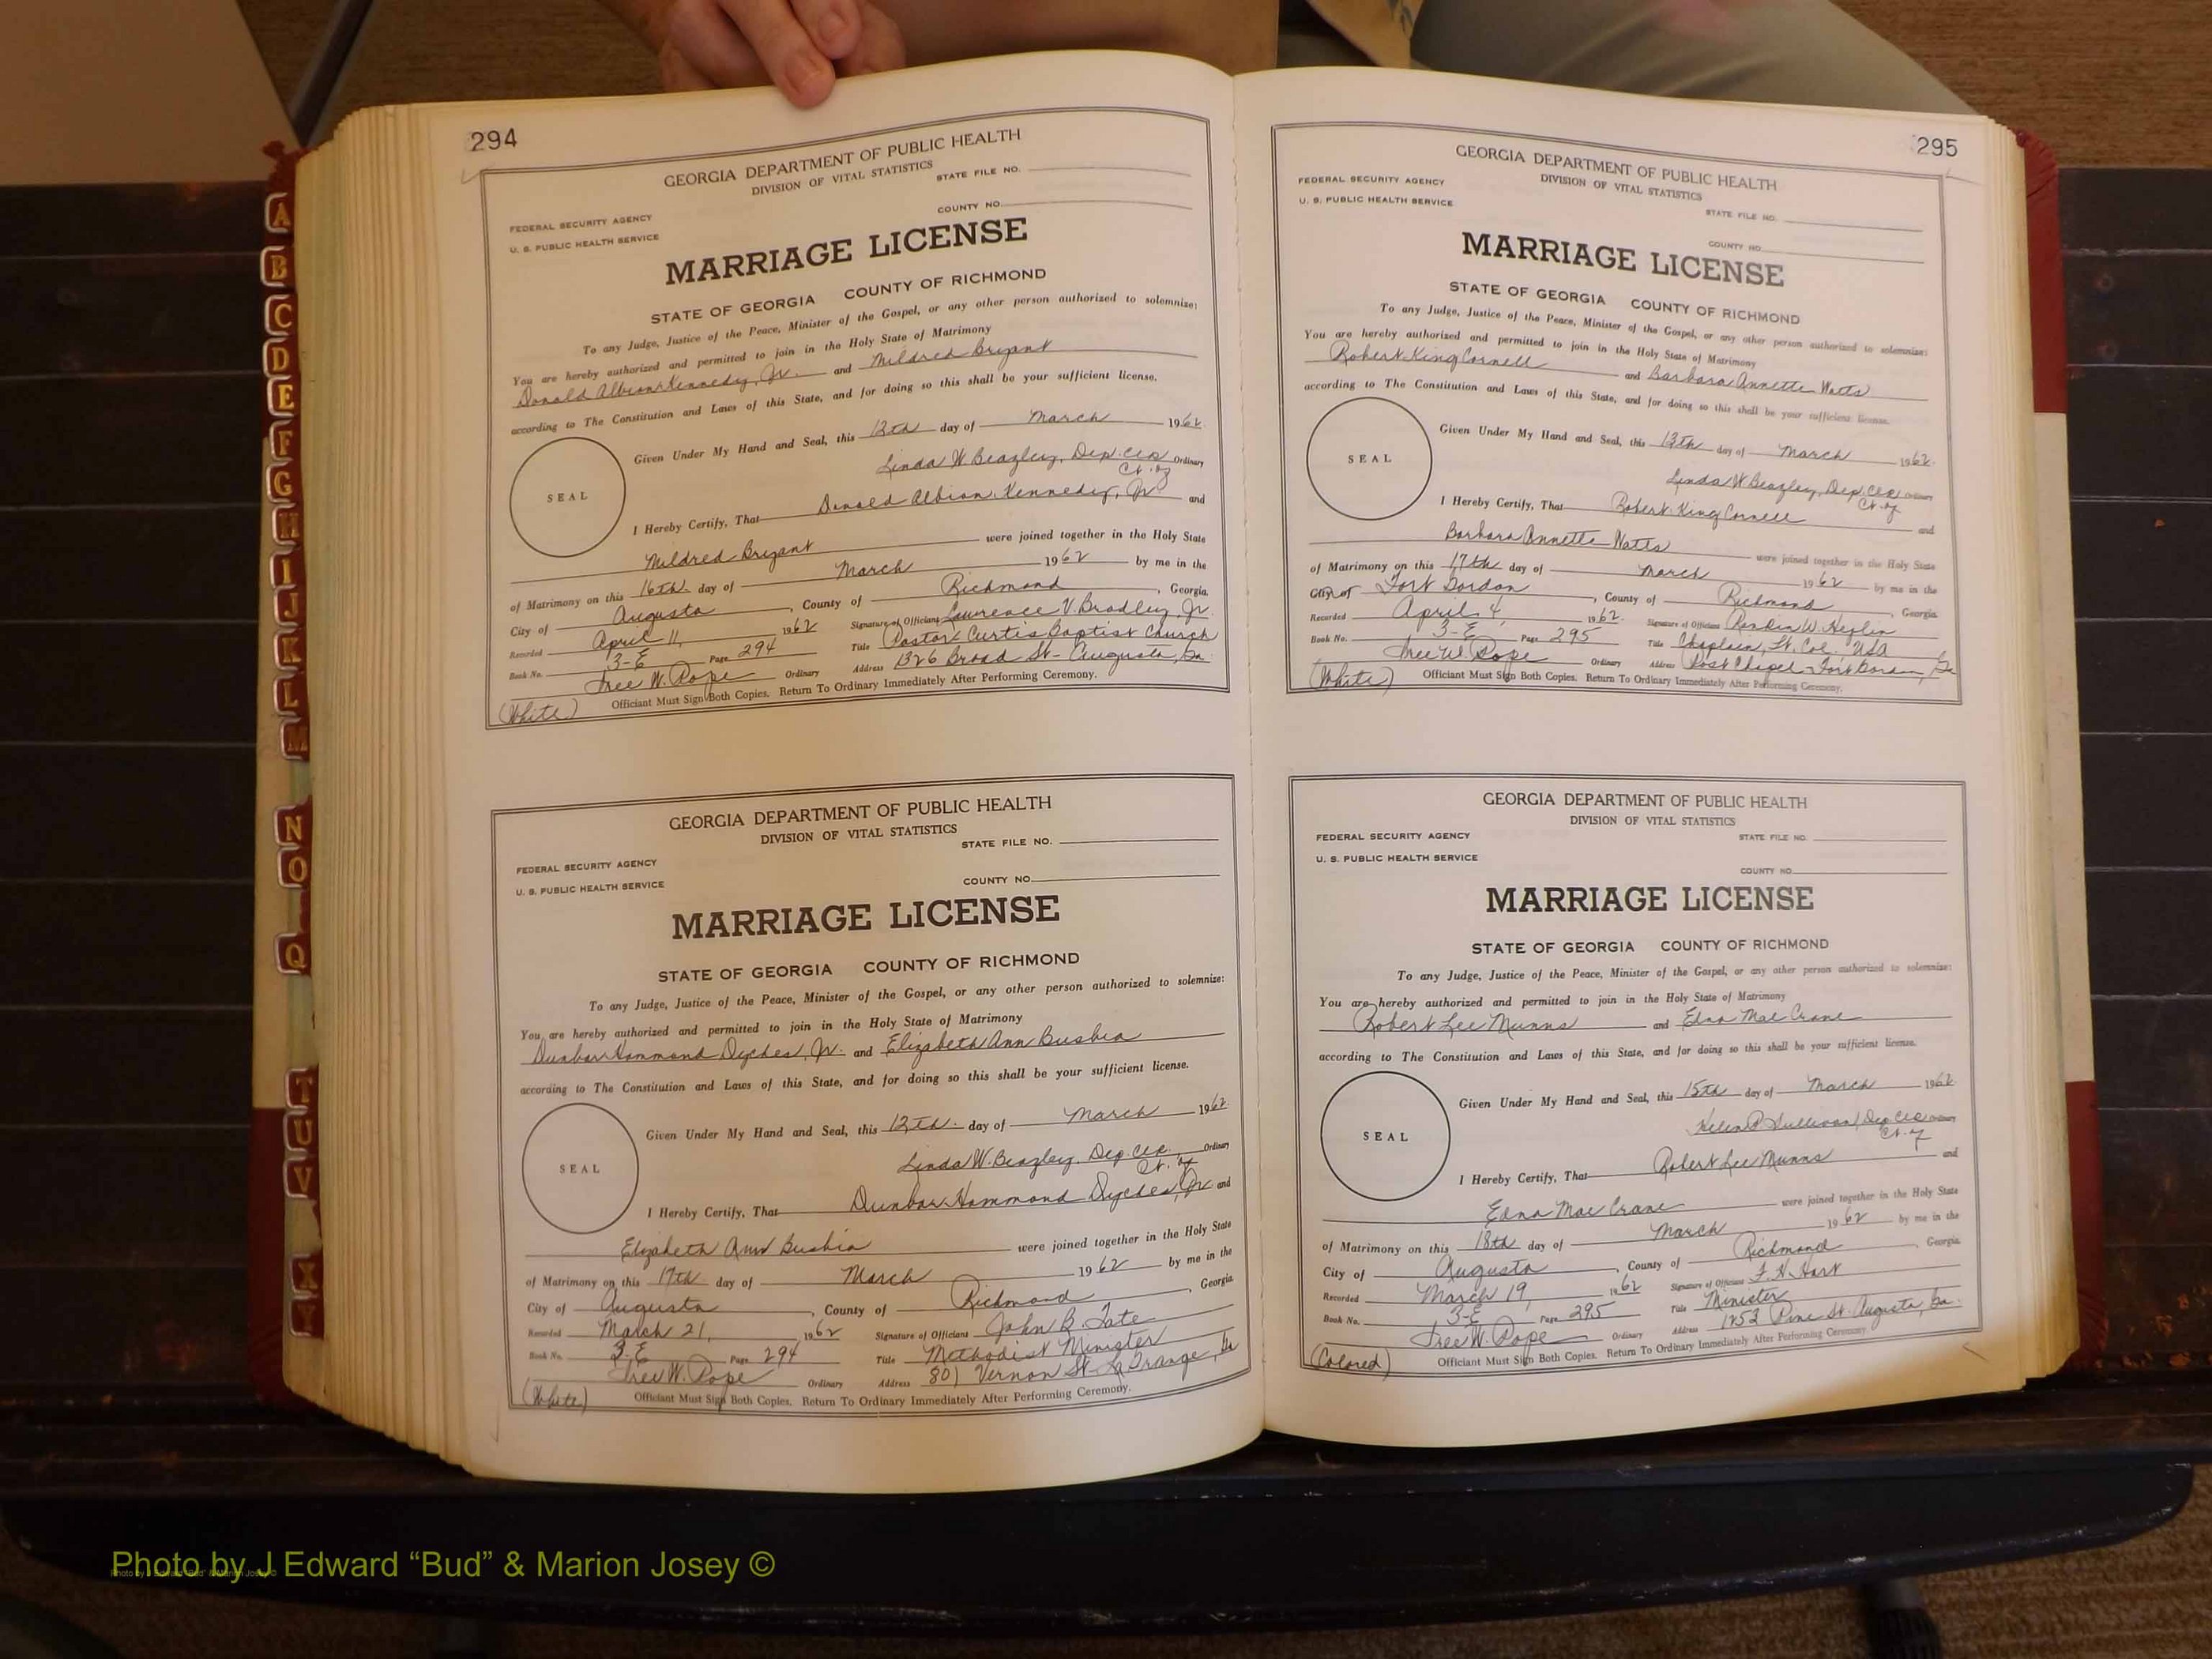 294
GEORGIA DEPARTMENT OF PUBLIC HEALTH
DIVISION OF VITAL STATISTICS
STATE FILE NO.
FEDERAL SECURITY AGENCY
COUNTY NO.
U. S. PUBLIC HEALTH SERVICE
MARRIAGE LICENSE
STATE OF GEORGIA COUNTY OF RICHMOND
To any Judge, Justice of the Peace, Minister of the Gospel, or any other person authorized to solemnize:
You are hereby authorized and permitted to join in the Holy State of Matrimony
Donald Albion Kennedy, Jr. and Mildred Bryant
according to The Constitution and Laws of this State, and for doing so this shall be your sufficient license.
Given Under My Hand and Seal, this 12th day of March 1962.
SEAL
Linda W. Beazley, Dep. Clk. Ordinary
Ct. of
I Hereby Certify, That Donald Albion Kennedy, Jr and
Mildred Bryant were joined together in the Holy State
of Matrimony on this 16th day of March 1962 by me in the
City of Augusta, County of Richmond, Georgia.
Recorded April 11, 1962 Signature of Officiant Lawrence V. Bradley, Jr.
Book No. 3-E Page 294 Title Pastor Curtis Baptist Church
Tree W. Pope Ordinary Address 1326 Broad St- Augusta, Ga.
(White) Officiant Must Sign Both Copies. Return To Ordinary Immediately After Performing Ceremony.
GEORGIA DEPARTMENT OF PUBLIC HEALTH
DIVISION OF VITAL STATISTICS
STATE FILE NO.
FEDERAL SECURITY AGENCY
U. S. PUBLIC HEALTH SERVICE
COUNTY NO.
MARRIAGE LICENSE
STATE OF GEORGIA COUNTY OF RICHMOND
To any Judge, Justice of the Peace, Minister of the Gospel, or any other person authorized to solemnize:
You are hereby authorized and permitted to join in the Holy State of Matrimony
Dunbar Hammond Dyches, Jr. and Elizabeth Ann Busbia
according to The Constitution and Laws of this State, and for doing so this shall be your sufficient license.
Given Under My Hand and Seal, this 12th. day of March 1962.
SEAL
Linda W. Beazley, Dep. Clk. Ordinary
Ct. of
I Hereby Certify, That Dunbar Hammond Dyches, Jr and
Elizabeth Ann Busbia were joined together in the Holy State
of Matrimony on this 17th day of March 1962 by me in the
City of Augusta, County of Richmond, Georgia.
Recorded March 21, 1962 Signature of Officiant John B. Tate
Book No. 3-E Page 294 Title Methodist Minister
Tree W. Pope Ordinary Address 801 Vernon St. LaGrange, Ga
(White) Officiant Must Sign Both Copies. Return To Ordinary Immediately After Performing Ceremony.
295
GEORGIA DEPARTMENT OF PUBLIC HEALTH
DIVISION OF VITAL STATISTICS
FEDERAL SECURITY AGENCY
U. S. PUBLIC HEALTH SERVICE
STATE FILE NO.
COUNTY NO.
MARRIAGE LICENSE
STATE OF GEORGIA COUNTY OF RICHMOND
To any Judge, Justice of the Peace, Minister of the Gospel, or any other person authorized to solemnize:
You are hereby authorized and permitted to join in the Holy State of Matrimony
Robert King Cornell and Barbara Annette Watts
according to The Constitution and Laws of this State, and for doing so this shall be your sufficient license.
Given Under My Hand and Seal, this 13th day of March 1962.
SEAL
Linda W. Beazley, Dep. Clk Ordinary
Ct. of
I Hereby Certify, That Robert King Cornell and
Barbara Annette Watts were joined together in the Holy State
of Matrimony on this 17th day of March 1962 by me in the
City of Fort Gordon, County of Richmond, Georgia.
Recorded April 4, 1962. Signature of Officiant W. Heflin
Book No. 3-E Page 295 Title Chaplain, Lt. Col. USA
Tree W. Pope Ordinary Address Post Chapel - Fort Gordon, Ga
(White) Officiant Must Sign Both Copies. Return To Ordinary Immediately After Performing Ceremony.
GEORGIA DEPARTMENT OF PUBLIC HEALTH
DIVISION OF VITAL STATISTICS
FEDERAL SECURITY AGENCY
STATE FILE NO.
U. S. PUBLIC HEALTH SERVICE
COUNTY NO.
MARRIAGE LICENSE
STATE OF GEORGIA COUNTY OF RICHMOND
To any Judge, Justice of the Peace, Minister of the Gospel, or any other person authorized to solemnize:
You are hereby authorized and permitted to join in the Holy State of Matrimony
Robert Lee Munns and Edna Mae Crane
according to The Constitution and Laws of this State, and for doing so this shall be your sufficient license.
Given Under My Hand and Seal, this 15th day of March 1962.
SEAL
Helen P. Sullivan, Dep Clk Ordinary
Ct. of
I Hereby Certify, That Robert Lee Munns and
Edna Mae Crane were joined together in the Holy State
of Matrimony on this 18th day of March 1962 by me in the
City of Augusta, County of Richmond, Georgia.
Recorded March 19, 1962 Signature of Officiant F. H. Hart
Book No. 3-E Page 295 Title Minister
Tree W. Pope Ordinary Address 1252 Pine St. Augusta, Ga.
(Colored) Officiant Must Sign Both Copies. Return To Ordinary Immediately After Performing Ceremony.
A
B
C
D
E
F
G
H
I
J
K
L
M
N
O
Q
T
U
V
X
Y
Photo by J Edward “Bud” & Marion Josey ©
Photo by J Edward “Bud” & Marion Josey ©